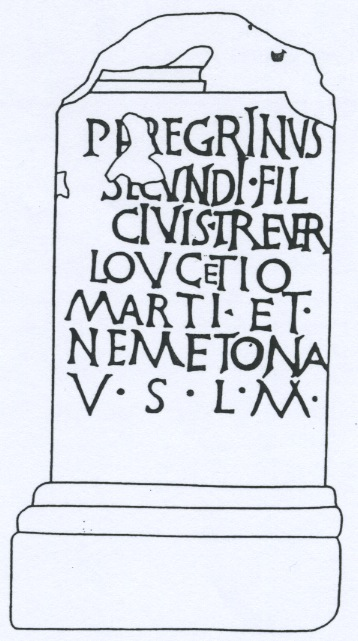 PEREGRINVS
SECVNDI·FIL
CIVIS·TREVER
LOVCETIO
MARTI·ET·
NEMETONA
V·S·L·M·